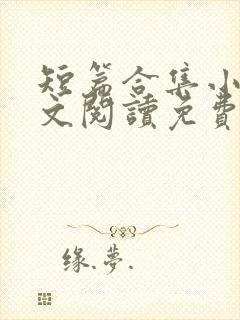 短篇合集小
文閱讀免費
缘.夢.